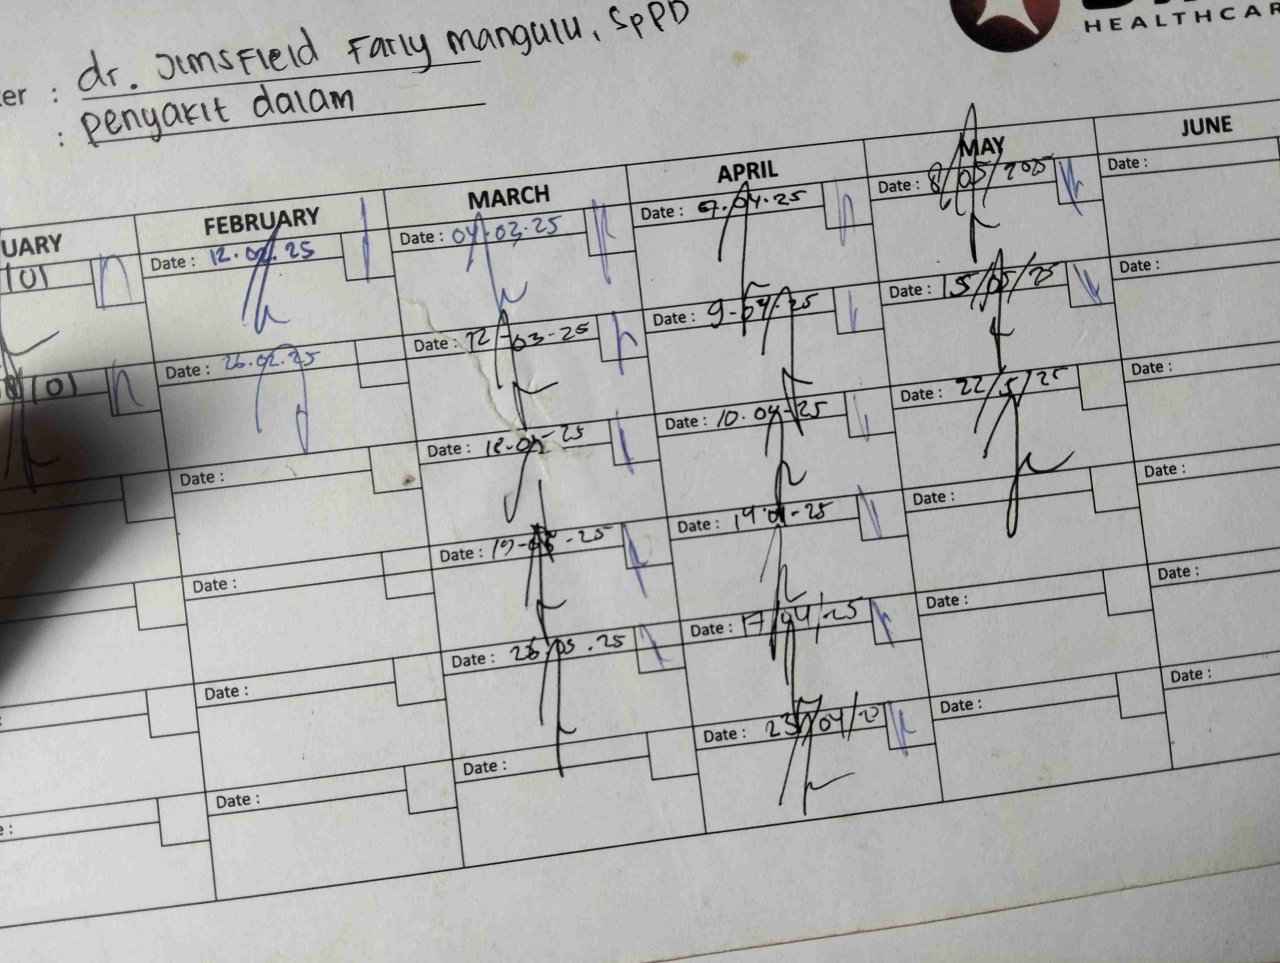 dr. Jimsfield Farly Mangulu, SpPD
HEALTHCAR
er :
: Penyakit dalam
UARY FEBRUARY MARCH APRIL MAY JUNE
Date : 12.02.25 Date : 04.03.25 Date : 07.04.25 Date : 8/05/2025 Date :
Date : 26.02.25 Date : 12-03-25 Date : 9-04-25 Date : 15/05/25 Date :
Date : Date : Date : 10.04-25 Date : 22/5/25 Date :
Date : Date : Date : Date : Date :
Date : Date : 26.03.25 Date : 17/04/25 Date : Date :
Date : Date : Date : 23/04/2 Date : Date :